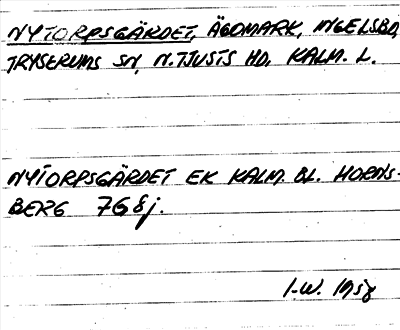 NYTORPSGÄRDET, ÄGOMARK, INGELSBO,
TRYSERUMS SN, N.TJUSTS HD, KALM. L.
NYTORPSGÄRDET EK KALM. BL. HORNS-
BERG 7G8j.
I.W. 1958